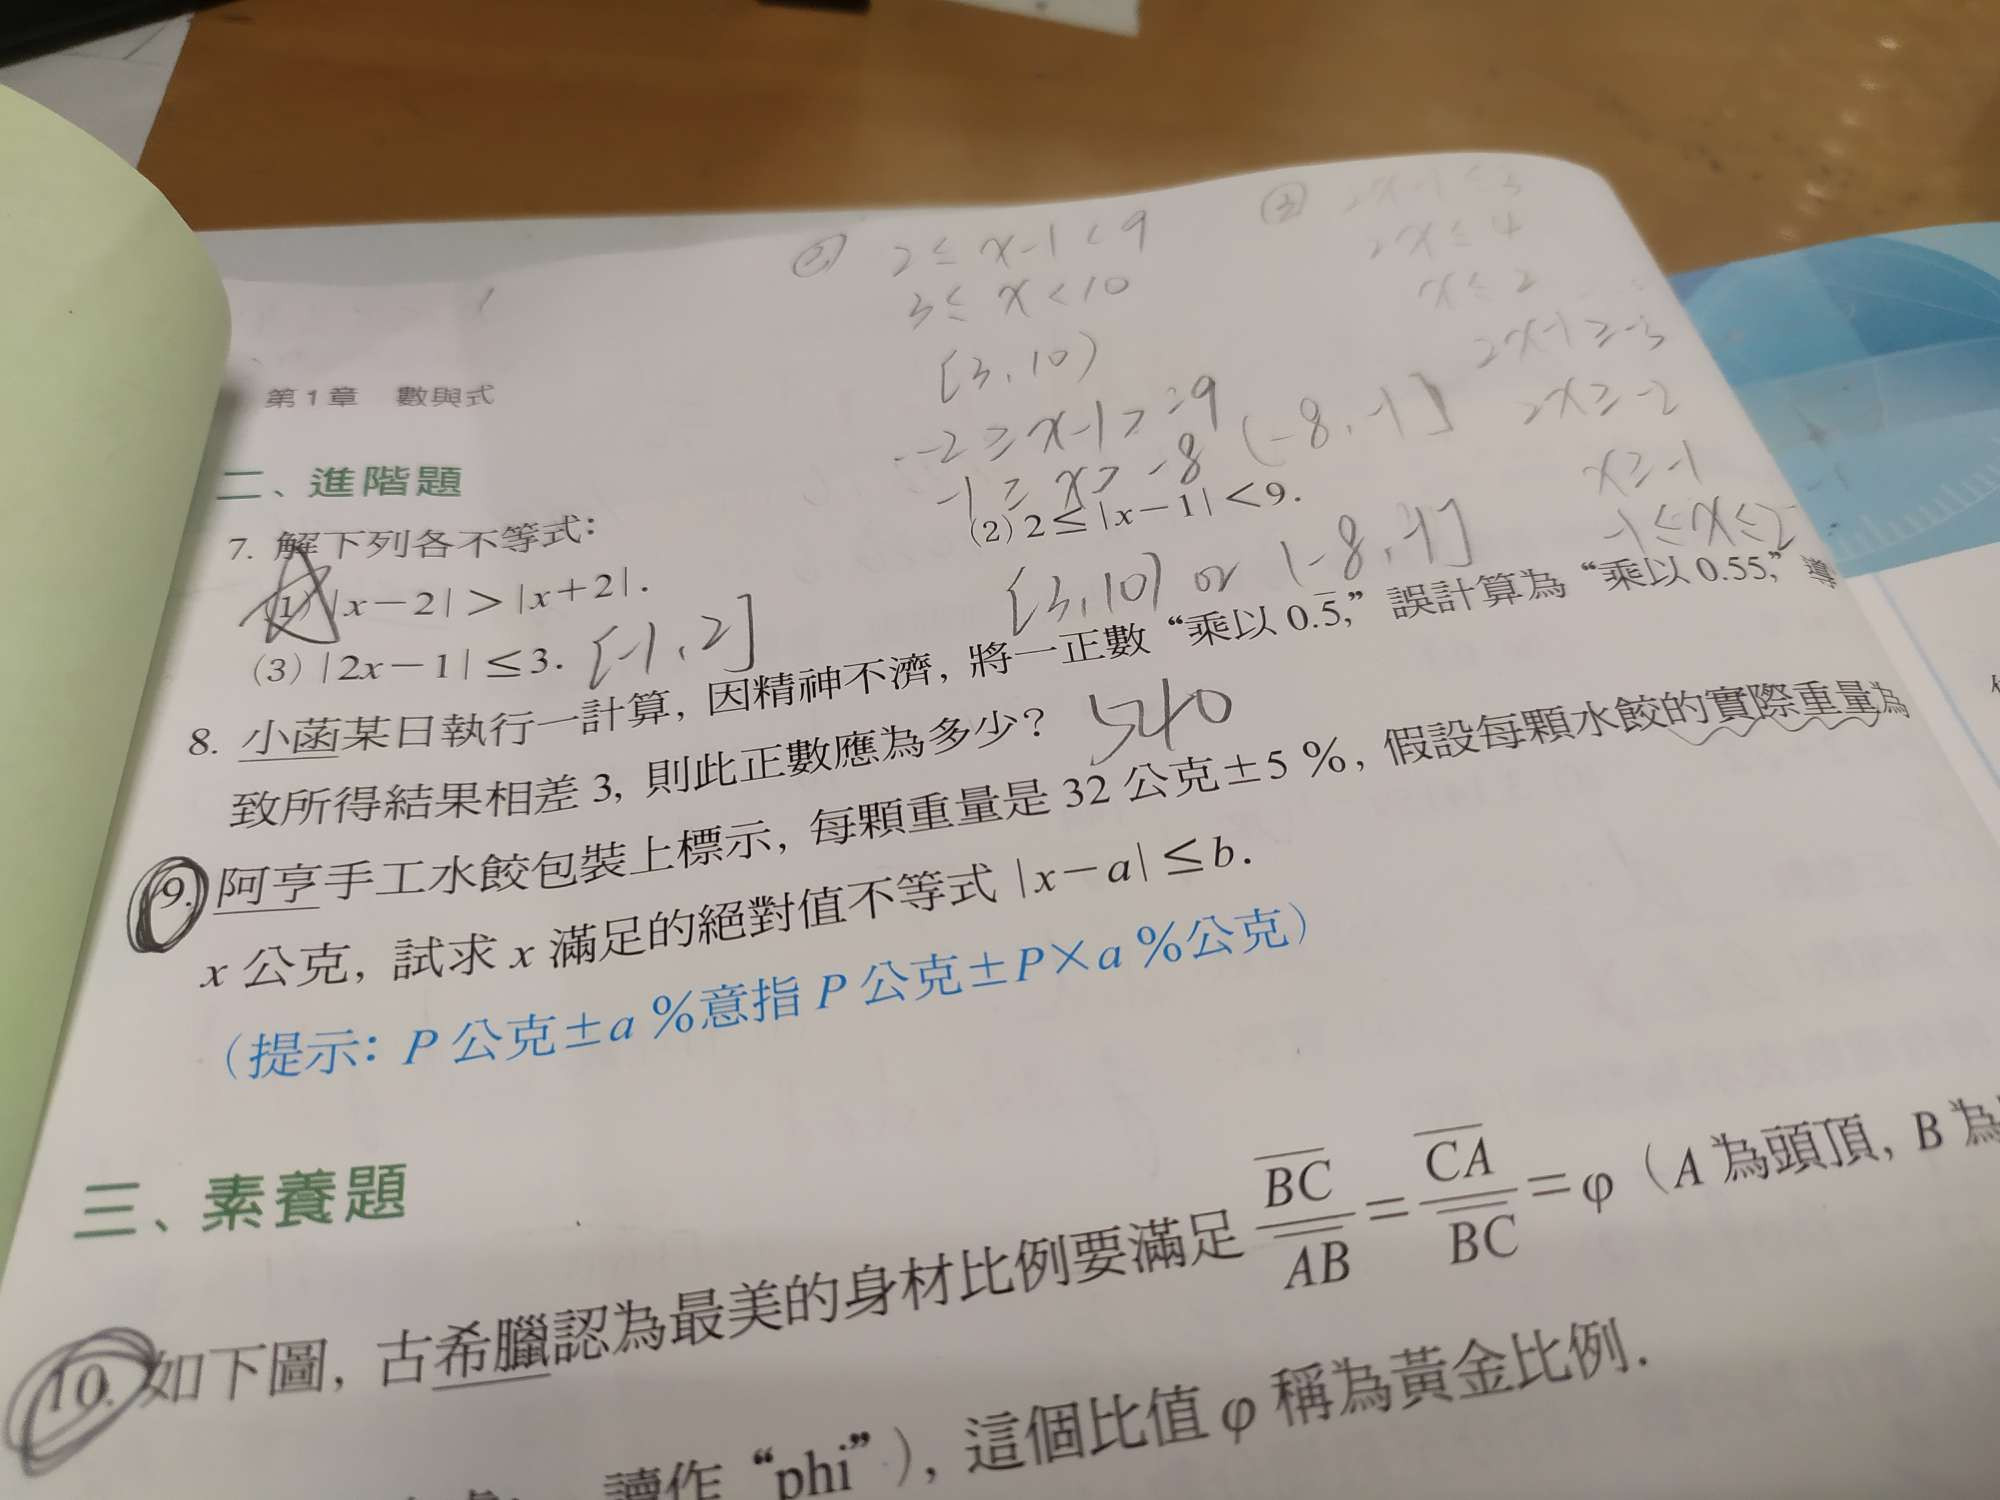 ② 2≤x-1<9
3≤x<10
[3,10)
-2≥x-1>-9
-1≥x>-8 (-8,-1]
③ 2x-1≤3
2x≤4
x≤2
2x-1≥-3
2x≥-2
x≥-1
-1≤x≤2
第1章 數與式
二、進階題
7. 解下列各不等式:
(1) |x-2|>|x+2|.
(2) 2≤|x-1|<9.
[3,10) or (-8,-1]
(3) |2x-1|≤3. [-1,2]
8. 小菡某日執行一計算, 因精神不濟, 將一正數“乘以0.5̅,”誤計算為“乘以0.55,”導
致所得結果相差3, 則此正數應為多少? 540
9. 阿亨手工水餃包裝上標示, 每顆重量是32公克±5%, 假設每顆水餃的實際重量為
x公克, 試求x滿足的絕對值不等式|x-a|≤b.
(提示: P公克±a%意指P公克±P×a%公克)
三、素養題
10. 如下圖, 古希臘認為最美的身材比例要滿足 BC/AB=CA/BC=φ (A為頭頂, B為
讀作“phi”), 這個比值φ稱為黃金比例.